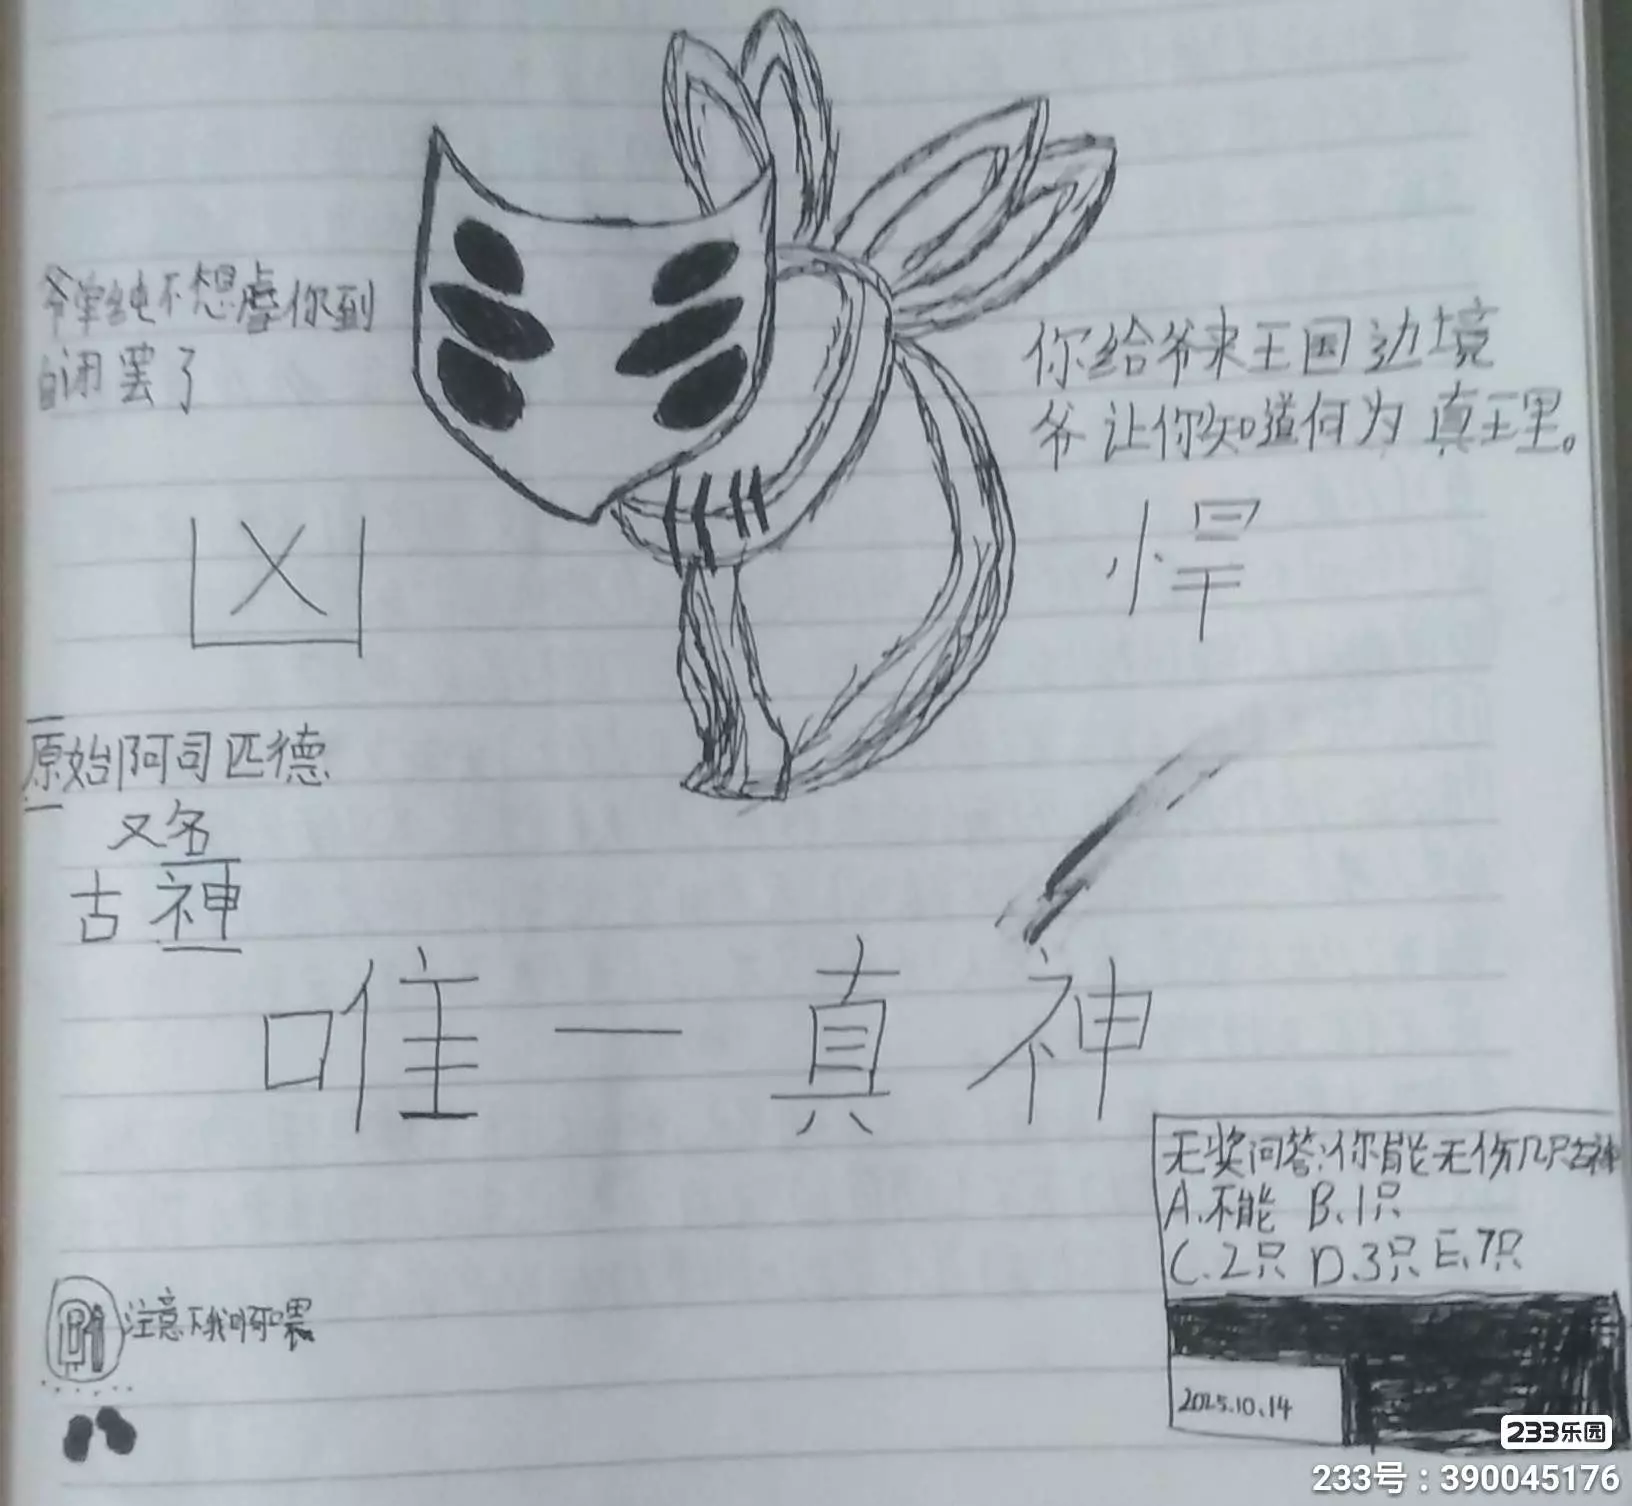 爷单纯不想虐你到
自闭罢了
你给爷来王国边境
爷让你知道何为真理。
凶
悍
原始阿司匹德
又名
古神
唯一真神
无奖问答:你能无伤几只古神
A.不能 B.1只
C.2只 D.3只 E.7只
注意下我啊喂
2025.10.14
233乐园
233号:390045176